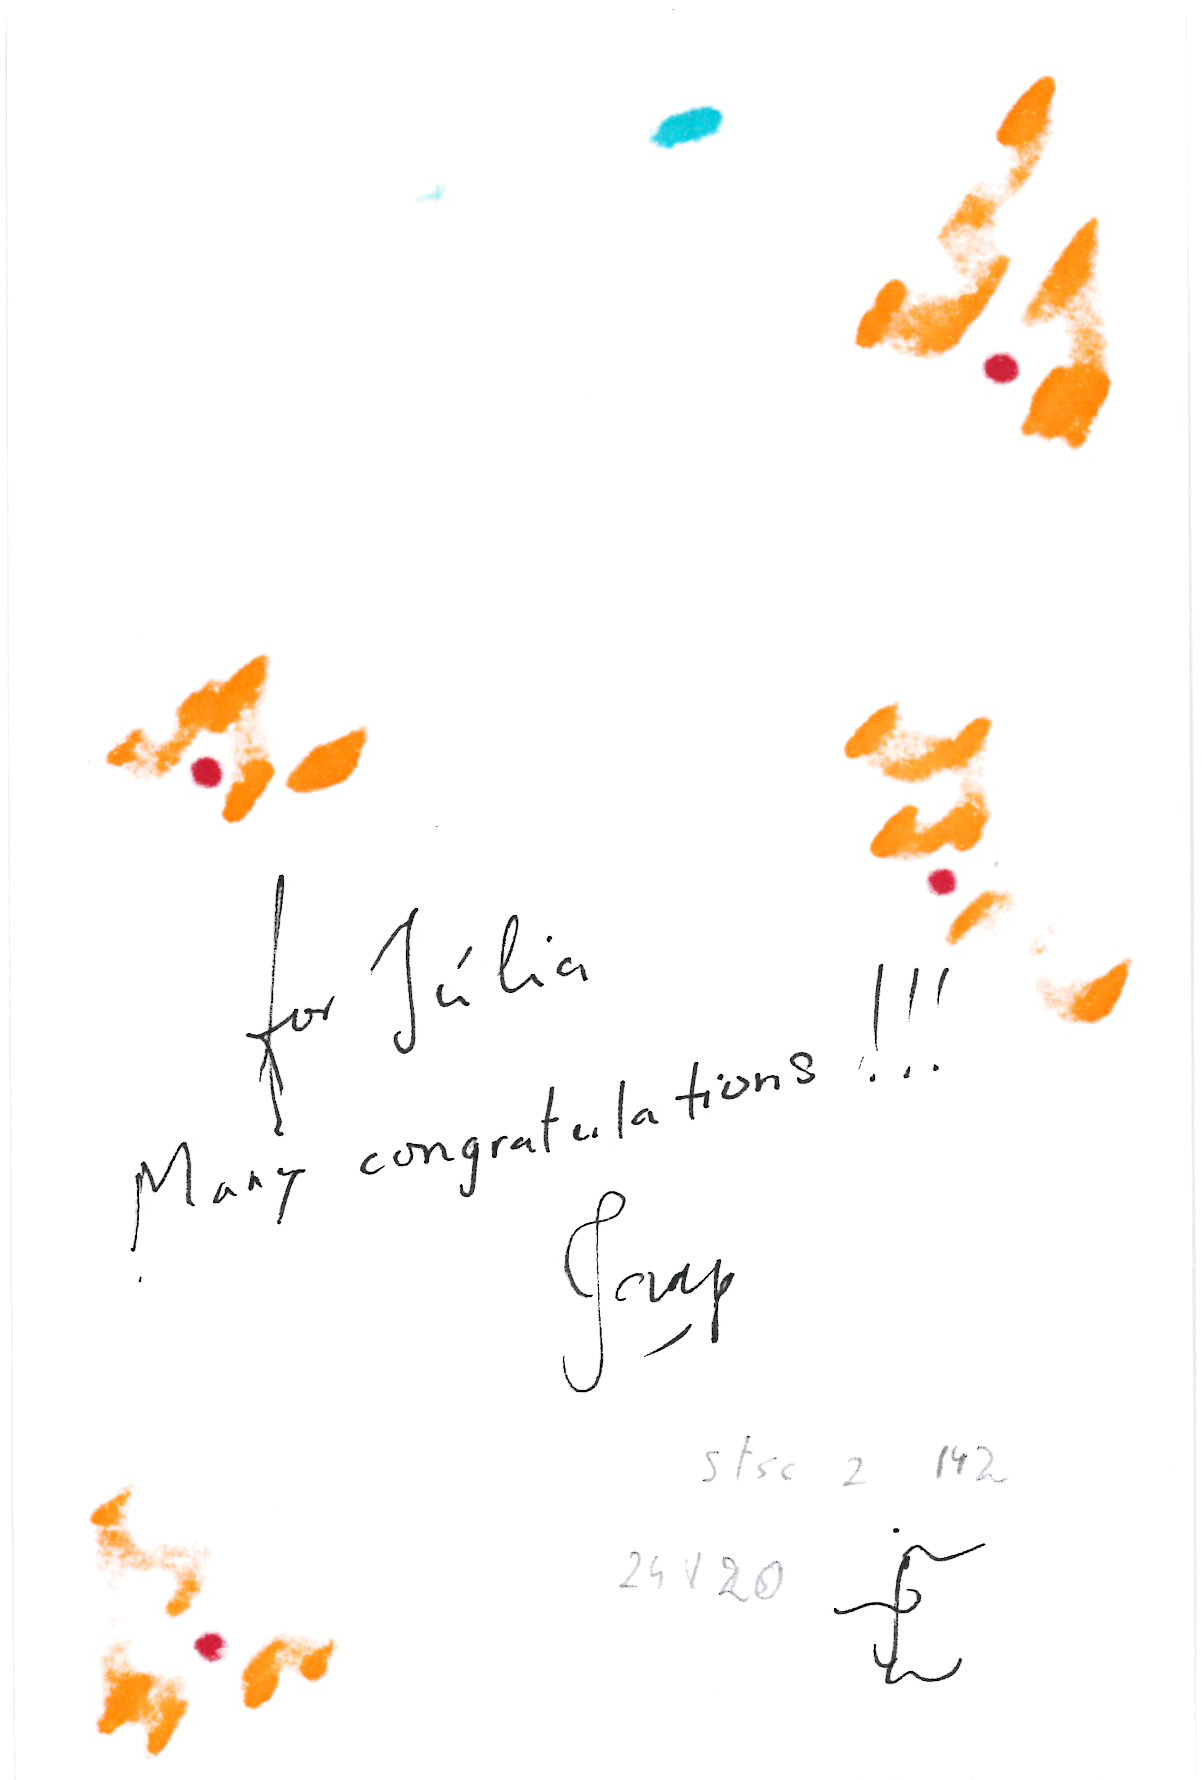 for Júlia
Many congratulations !!!
Jaap
stsc 2 142
24 V 20